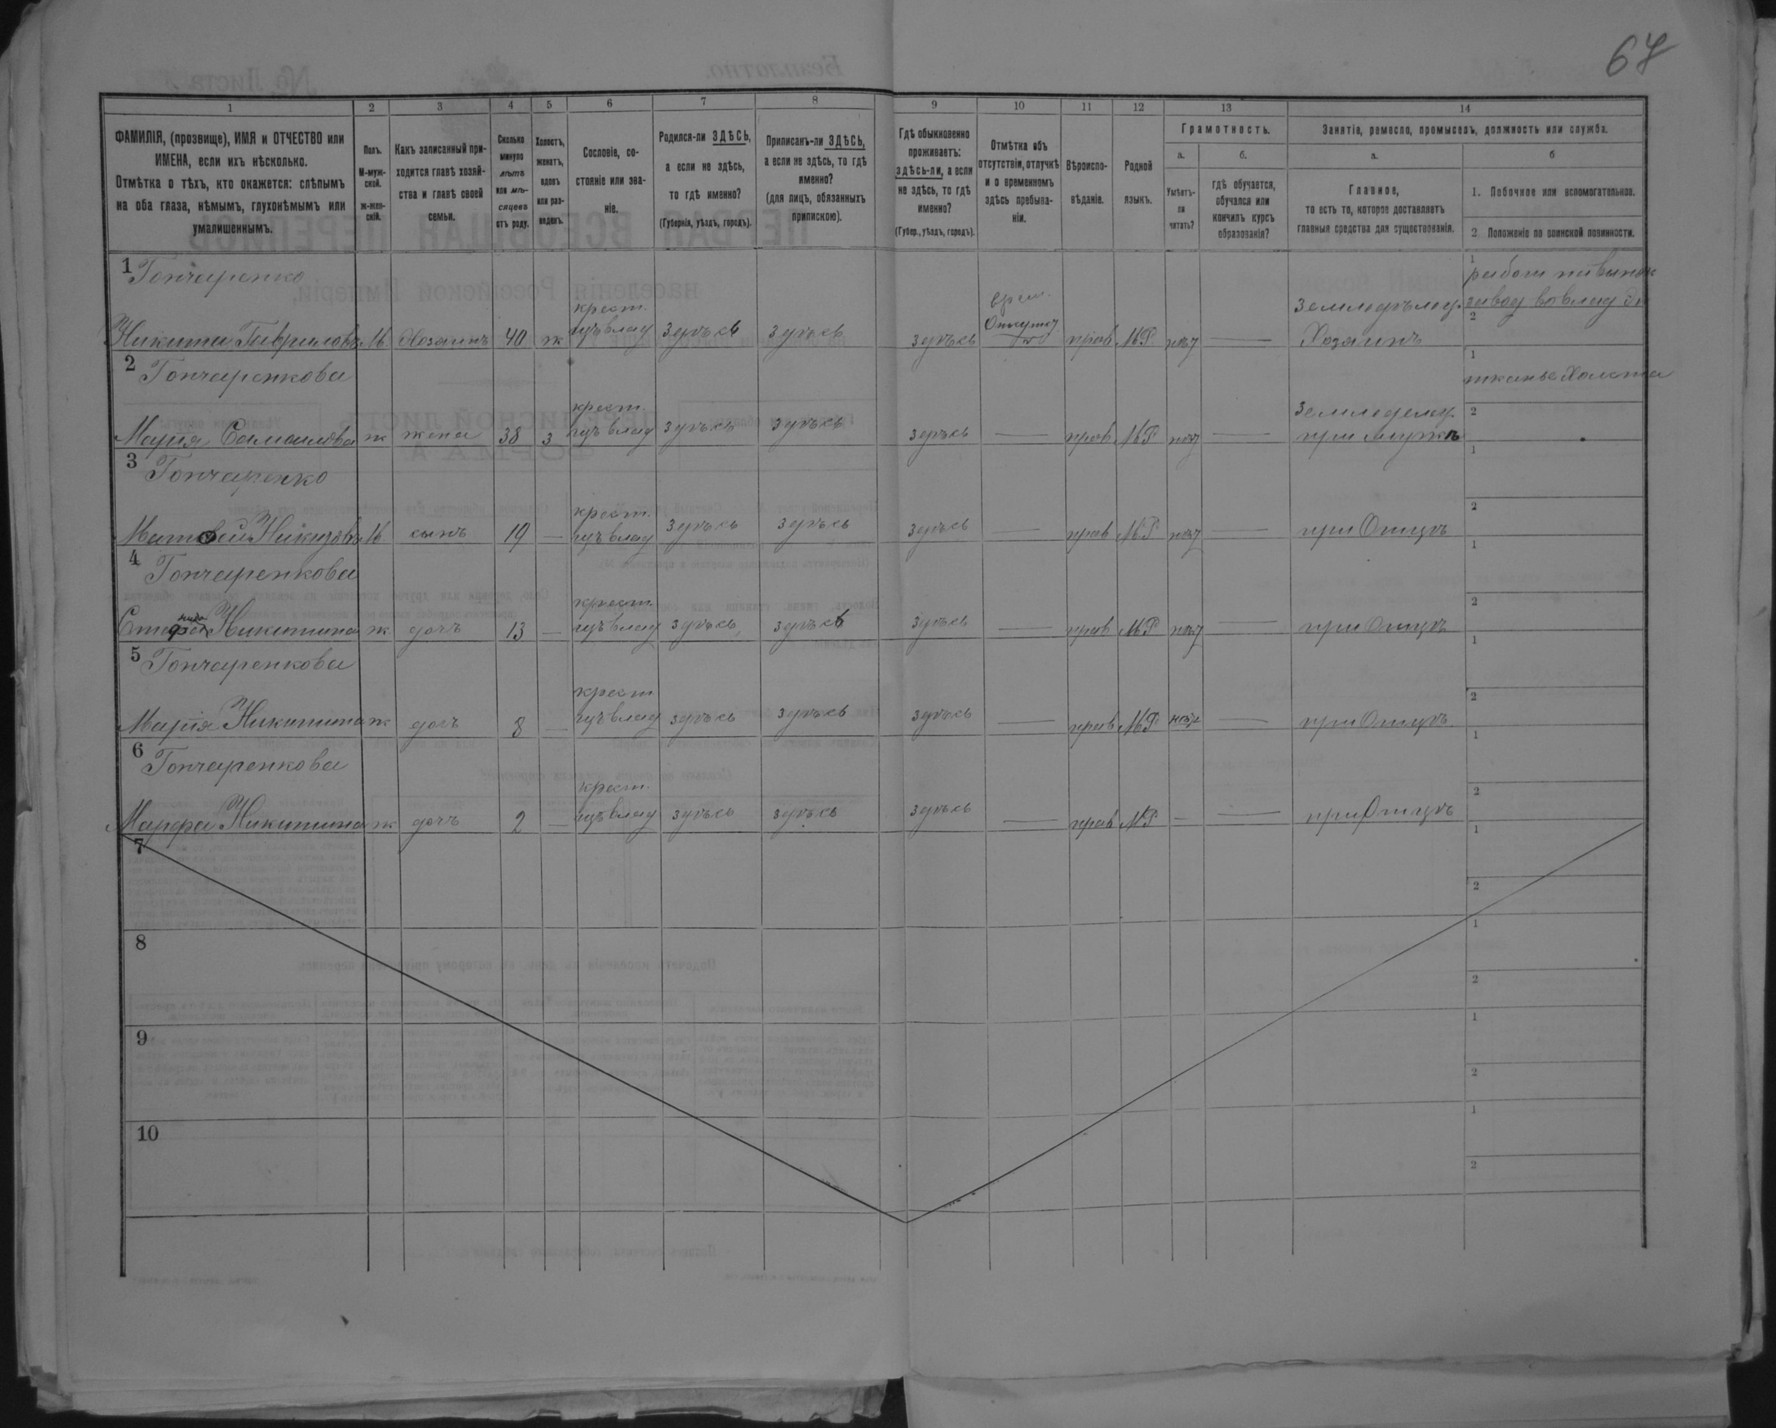 67
1 2 3 4 5 6 7 8 9 10 11 12 13 14
ФАМИЛІЯ, (прозвище), ИМЯ и ОТЧЕСТВО или
ИМЕНА, если ихъ нѣсколько.
Отмѣтка о тѣхъ, кто окажется: слѣпымъ
на оба глаза, нѣмымъ, глухонѣмымъ или
умалишеннымъ.
Полъ.
М-муж-
ской.
Ж-жен-
скій.
Какъ записанный при-
ходится главѣ хозяй-
ства и главѣ своей
семьи.
Сколько
минуло
лѣтъ
или мѣ-
сяцевъ
отъ роду.
Холостъ,
женатъ,
вдовъ
или раз-
веденъ.
Сословіе, со-
стояніе или зва-
ніе.
Родился-ли ЗДѢСЬ,
а если не здѣсь,
то гдѣ именно?
(Губернія, уѣздъ, городъ).
Приписанъ-ли ЗДѢСЬ,
а если не здѣсь, то гдѣ
именно?
(для лицъ, обязанныхъ
припискою).
Гдѣ обыкновенно
проживаетъ:
здѣсь-ли, а если
не здѣсь, то гдѣ
именно?
(Губер., уѣздъ, городъ).
Отмѣтка объ
отсутствіи, отлучкѣ
и о временномъ
здѣсь пребыва-
ніи.
Вѣроиспо-
вѣданіе.
Родной
языкъ.
Грамотность.
а.
Умѣетъ-
ли
читать?
б.
гдѣ обучается,
обучался или
кончилъ курсъ
образованія?
Занятіе, ремесло, промыселъ, должность или служба.
а.
Главное,
то есть то, которое доставляетъ
главныя средства для существованія.
б
1. Побочное или вспомогательное.
2 Положеніе по воинской повинности.
1 Гончаренко
Никита Гавриловъ М Хозяинъ 40 ж крест. здѣсь здѣсь здѣсь прав МР Земледѣлец. Хозяинъ 1 2
2 Гончаренкова
Марія Самойлова ж жена 38 з крест. здѣсь здѣсь здѣсь — прав МР — Земледелец. при мужѣ 1 тканье Холста 2
3 Гончаренко
Матвей М сынъ 19 — крест. здѣсь здѣсь здѣсь — прав МР — при Отцѣ 1 2
4 Гончаренкова
Никитина ж дочъ 13 — крест. здѣсь здѣсь здѣсь — прав МР — при Отцѣ 1 2
5 Гончаренкова
Марія Никитина ж дочъ 8 — крест. здѣсь здѣсь здѣсь — прав МР — при Отцѣ 1 2
6 Гончаренкова
Марфа Никитина ж дочъ 2 — крест. здѣсь здѣсь здѣсь — прав МР — — при Отцѣ 1 2
7 1 2
8 1 2
9 1 2
10 1 2